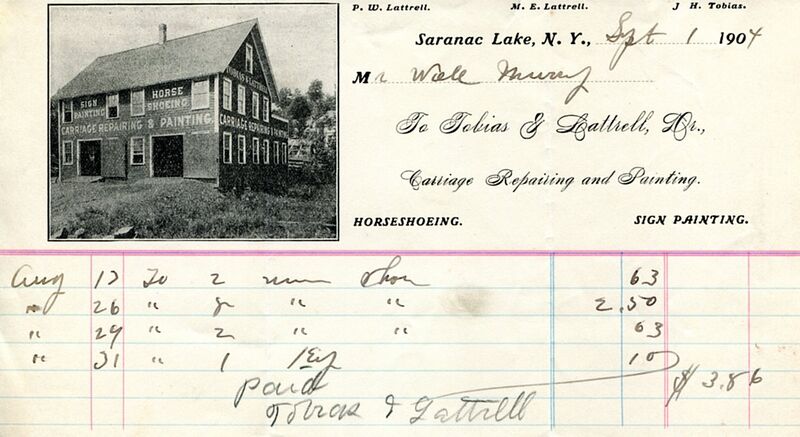 P. W. Lattrell. M. E. Lattrell. J H. Tobias.
Saranac Lake, N. Y., Sept 1 1904
Mr Will Murry
To Tobias & Lattrell, Dr.,
Carriage Repairing and Painting.
HORSESHOEING. SIGN PAINTING.
SIGN PAINTING HORSE SHOEING
CARRIAGE REPAIRING & PAINTING.
TOBIAS & LATTRELL
CARRIAGE REPAIRING & PAINTING
Aug 17 To 2 new Shoes 63
" 26 " 8 " " 2.50
" 29 " 2 " " 63
" 31 " 1 10
$3.86
paid
Tobias & Lattrell